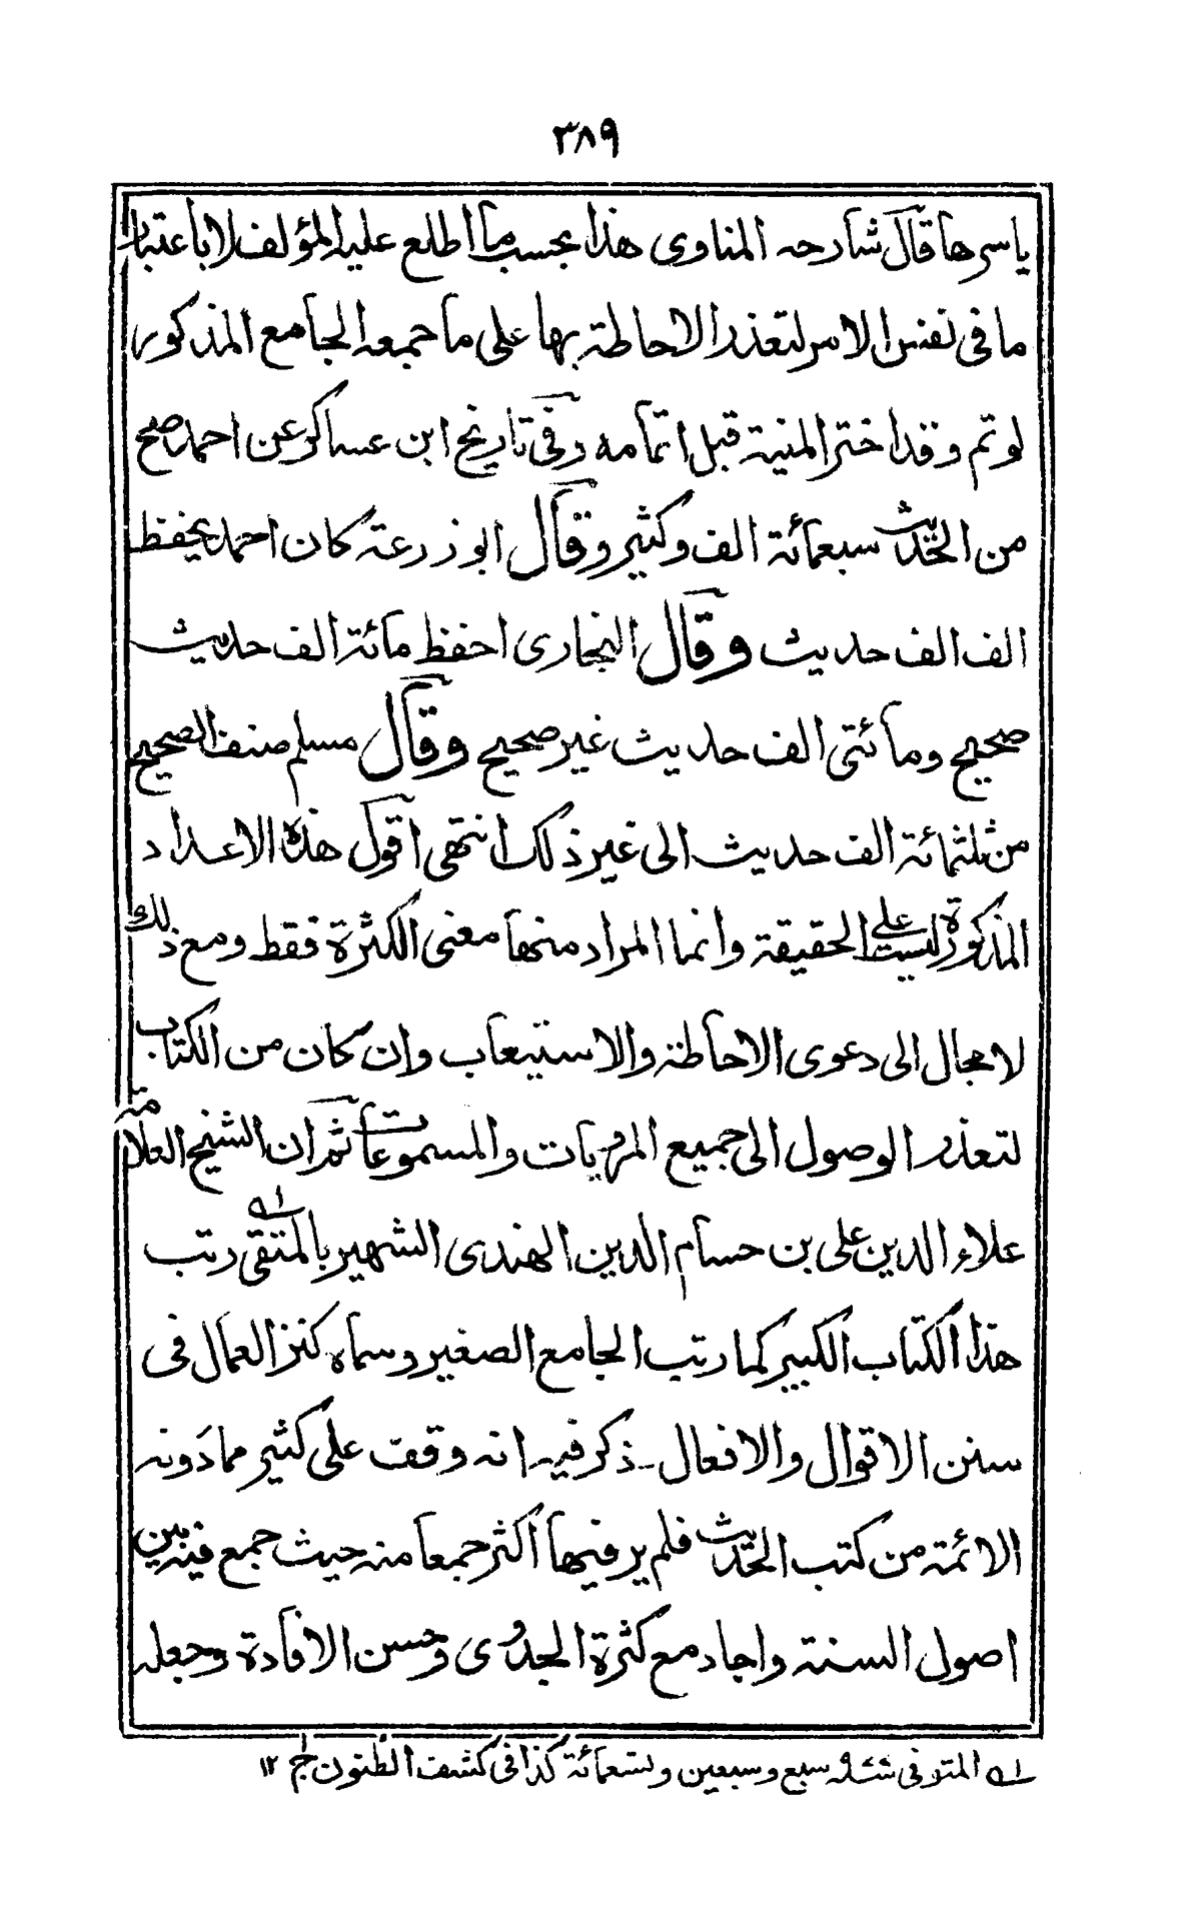 ٣٨٩
ياسرها قال شارحه المناوى هذا بحسب ما اطلع عليه المؤلف لا باعتبار
ما فى نفس الامر لتعذر الاحاطة بها على ما جمعه الجامع المذكور
لو تم وقد اخترالمنية قبل اتمامه وفى تاريخ ابن عساكر عن احمد صح
من الحديث سبعمائة الف وكثير وقال ابو زرعة كان احمد يحفظ
الف الف حديث وقال البخارى احفظ مائة الف حديث
صحيح ومائتى الف حديث غير صحيح وقال مسلم صنف الصحيح
من ثلثمائة الف حديث الى غير ذلك انتهى اقول هذه الاعداد
المذكورة ليست على الحقيقة وانما المراد منها معنى الكثرة فقط ومع ذلك
لا مجال الى دعوى الاحاطة والاستيعاب وان كان من الكتاب
لتعذر الوصول الى جميع المرويات والمسموعات ثم ان الشيخ العلامة
علاء الدين على بن حسام الدين الهندى الشهير بالمتقى له رتب
هذا الكتاب الكبير كما رتب الجامع الصغير وسماه كنز العمال فى
سنن الاقوال والافعال ـ ذكر فيه انه وقف على كثير مما دونه
الائمة من كتب الحديث فلم ير فيها اكثر جمعا منه حيث جمع فيه بين
اصول السنة واجاد مع كثرة الجدوى وحسن الافادة وجعله
له المتوفى سبع وسبعين وتسعمائة كذا فى كشف الظنون ج ١٢